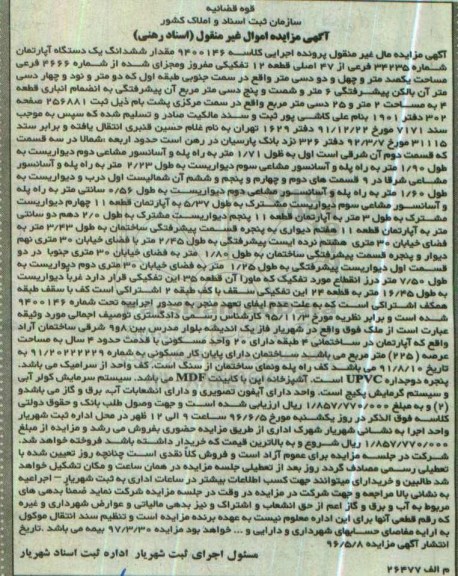 قوه قضائیه
سازمان ثبت اسناد و املاک کشور
آگهی مزایده اموال غیر منقول (اسناد رهنی)
آگهی مزایده مال غیر منقول پرونده اجرایی کلاسه ۹۴۰۰۱۴۶ مقدار ششدانگ یک دستگاه آپارتمان
شماره ۳۴۲۳۵ فرعی از ۴۷ اصلی قطعه ۱۲ تفکیکی مفروز ومجزای شده از شماره ۴۶۶۶ فرعی
مساحت یکصد متر و چهل و دو دسی متر واقع در سمت جنوبی طبقه اول که دو متر و نود و چهار دسی
متر آن بالکن پیشرفتگی ۶ متر و شصت و پنج دسی متر مربع آن پیشرفتگی به انضمام انباری قطعه
۴ به مساحت ۲ متر و ۲۵ دسی متر مربع واقع در سمت مرکزی پشت بام ذیل ثبت ۲۵۶۸۸۱ صفحه
۳۰۲ دفتر ۱۹۰۱ بنام علی کاشی پور ثبت و سند مالکیت صادر و تسلیم شده که سپس به موجب
سند ۷۱۷۱ مورخ ۹۱/۱۲/۲۲ دفتر ۱۶۲۹ تهران به نام غلام حسین قنبری انتقال یافته و برابر سند
۳۱۱۱۵ مورخ ۹۲/۳/۷ دفتر ۳۲۶ نزد بانک پارسیان در رهن است حدود اربعه :شمالا در سه قسمت
که قسمت دوم آن شرقی است اول به قول ۱/۷۱ متر به راه پله و آسانسور مشاعی دوم دیواریست به
طول ۱/۹۰ متر به راه پله و آسانسور مشاعی سوم دیواریست به طول ۲/۲۳ متر به راه پله و آسانسور
مشاعی شرقا در ۹ قسمت های دوم و چهارم و پنجم و ششم آن شمالیست اول درب و دیواریست به
طول ۱/۶۰ متر به راه پله و آسانسور مشاعی دوم دیواریست به طول ۰/۵۶ سانتی متر به راه پله
و آسانسور مشاعی سوم دیواریست مشترک به طول ۵/۳۷ به آپارتمان قطعه ۱۱ چهارم دیواریست
مشترک به طول ۳ متر به آپارتمان قطعه ۱۱ پنجم دیواریست مشترک به طول ۲/۰ دهم دو سانتی
متر به آپارتمان قطعه ۱۱ هفتم دیواری به پنجره قسمت پیشرفتگی ساختمان به طول ۳/۴۳ متر به
فضای خیابان ۳۰ متری هشتم نرده ایست پیشرفتگی به طول ۲/۴۵ متر با فضای خیابان ۳۰ متری نهم
دیوار و پنجره قسمت پیشرفتگی ساختمان به طول ۱/۸۰ متر به فضای خیابان ۳۰ متری جنوبا در دو
قسمت اول دیواریست پیشرفتگی به طول ۱/۲۵ متر به فضای خیابان ۳۰ متری دوم دیواریست به
طول ۷/۵۰ متر درز انقطاع مورد تفکیک که ماورا آن قطعه ۳۵ این تفکیکی قرار دارد غربا دیواریست
به طول متر به قطعه ۲۴ این تفکیکی سقف با کف طبقه ۲ اشتراکی است کف با سقف طبقه
همکف اشتراکی است که به علت عدم ایفای تعهد منجر به صدور اجراییه تحت شماره ۹۴۰۰۱۴۶
شده است و برابر نظریه مورخ ۹۵/۱۱/۳ کارشناس رسمی دادگستری توصیف اجمالی مورد وثیقه
عبارت است از ملک فوق واقع در شهریار فاز یک اندیشه بلوار مدرس بین ۸و۹ شرقی ساختمان آراد
واقع که آپارتمان در ساختمانی ۴ طبقه دارای ۲۰ واحد مسکونی با قدمت حدود ۴ سال به مساحت
عرصه (۲۲۵) متر مربع می باشید ساختمان دارای پایان کار مسکونی به شماره ۹۱/۲۰۲۲۲۲۲۹ به
تاریخ ۹۱/۸/۱۰ می باشد کف راه پله ونمای ساختمان از سنگ است. کف واحد از سرامیک می باشد.
پنجره دوجداره UPVC است. آشپزخانه اپن با کابینت MDF می باشد. سیستم سرمایش کولر آبی
و سیستم گرمایش پکیج است. واحد دارای آیفون تصویری و دارای انشعابات آب، برق و گاز می باشدو
(۲) و به مبلغ ۱/۸۵۷/۷۷۰/۰۰۰ ریال ارزیابی شده است و جهت وصول طلب بانک و حقوق دولتی
کلاسه فوق الذکر در روز یکشنبه مورخ ۹۶/۶/۵ ساعت ۹ الی ۱۲ ظهر در محل اداره ثبت شهریار
واحد اجرا به نشانی شهریار شهرک اداری از طریق مزایده حضوری بفروش می رشد و مزایده از مبلغ
۱/۸۵۷/۷۷۰/۰۰۰ ریال شروع و به بالاترین قیمت که خریدار داشته باشد فروخته خواهد شد.
شرکت در جلسه مزایده برای عموم آزاد است و فروش کلاً نقدی است چنانچه روز تعیین شده با
تعطیلی رسمی مصادف گردد روز بعد از تعطیلی جلسه مزایده در همان ساعت و مکان تشکیل خواهد
شد طالبین و خریداری میتوانند جهت کسب اطلاعات بیشتر در ساعات اداری به ثبت شهریار - اجراعیه
به نشانی بالا مراجعه و جهت شرکت در مزایده در وقت در جلسه مزایده شرکت نماید ضمناً بدهی های
مربوط به آب و برق و گاز اعم از حق انشعاب و اشتراک و نیز بدهی مالیاتی و عوارض شهرداری و غیره
که رقم قطعی آنها برای این اداره معلوم نیست به عهده برنده مزایده است و تنظیم سند انتقال موکول
به ارایه مفاصای حسابهای شهرداری و دارایی و ... خواهد بود مزایده ۹۷/۳/۳۰ بیمه می باشد .تاریخ
انتشار آگهی مزایده ۹۶/۵/۸
مسئول اجرای ثبت شهریار اداره ثبت اسناد شهریار
م الف ۲۶۴۷۷